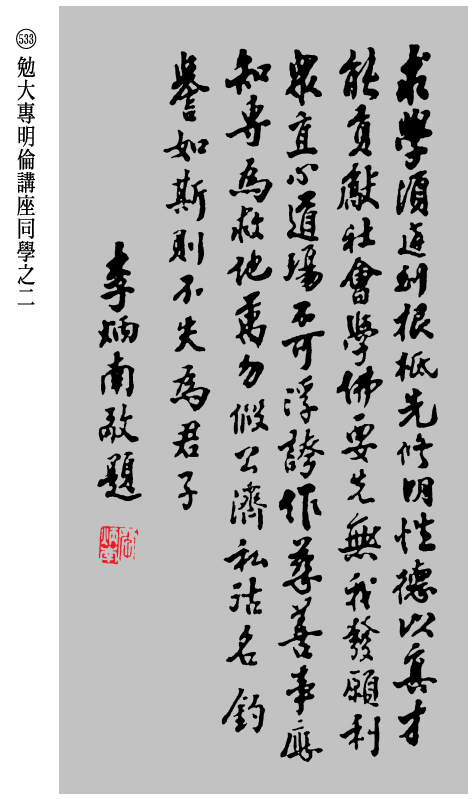 求學須到根柢先修明性德以真才
能貢獻社會學佛要先無我發願利
衆直心道場不可浮誇作慈善事應
知專為救他萬勿假公濟私沽名釣
譽如斯則不失為君子
李炳南敬題
533勉大專明倫講座同學之二